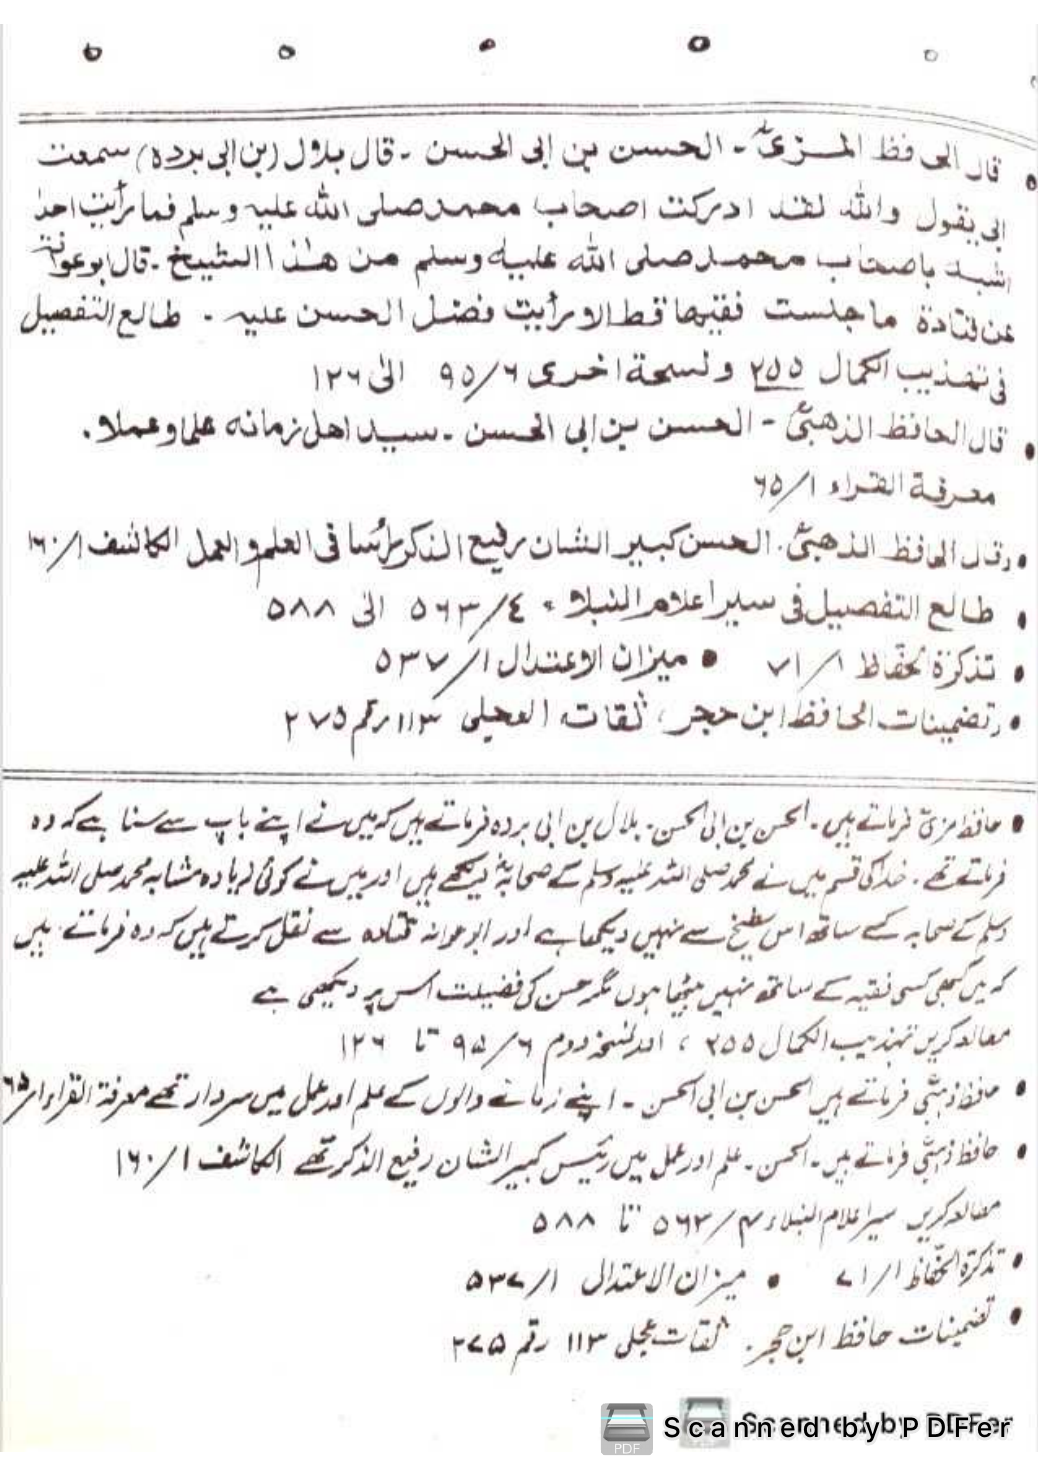 قال الحافظ المزیؒ - الحسن بن ابی الحسن - قال بلال (بن ابی بردہ) سمعت
ابی یقول واللہ لقد ادرکت اصحاب محمد صلی اللہ علیہ وسلم فما رأیت احدا
اشبہ باصحاب محمد صلی اللہ علیہ وسلم من ھذا الشیخ - قال ابو عوانۃ
عن قتادۃ ما جلست فقیھا قط الا رأیت فضل الحسن علیہ - طالع التفصیل
فی تھذیب الکمال ۲۵۵ ونسخۃ اخری ۶/۹۵ الی ۱۲۶
• قال الحافظ الذھبیؒ - الحسن بن ابی الحسن - سید اھل زمانہ علما وعملا.
معرفۃ القراء ۱/۶۵
• وقال الحافظ الذھبیؒ. الحسن کبیر الشان رفیع الذکر رأسا فی العلم والعمل الکاشف ۱/۱۶۰
• طالع التفصیل فی سیر اعلام النبلاء ٤/۵۶۳ الی ۵۸۸
• تذکرۃ الحفّاظ ۱/۷۱ • میزان الاعتدال ۱/۵۳۷
• وتضمینات الحافظ ابن حجر، ثقات العجلی ۱۱۳ رقم ۲۷۵
• حافظ مزیؒ فرماتے ہیں - الحسن بن ابی الحسن - بلال بن ابی بردہ فرماتے ہیں کہ میں نے اپنے باپ سے سنا ہے کہ وہ
فرماتے تھے. خدا کی قسم میں نے محمد صلی اللہ علیہ وسلم کے صحابہؓ دیکھے ہیں اور میں نے کوئی زیادہ مشابہ محمد صلی اللہ علیہ
وسلم کے صحابہ کے ساتھ اس شیخ سے نہیں دیکھا ہے اور ابو عوانہ قتادہ سے نقل کرتے ہیں کہ وہ فرماتے ہیں
کہ میں کبھی کسی فقیہ کے ساتھ نہیں بیٹھا ہوں مگر حسن کی فضیلت اس پر دیکھی ہے
مطالعہ کریں تہذیب الکمال ۲۵۵ ، اور نسخہ دوم ۶/۹۵ تا ۱۲۶
• حافظ ذہبیؒ فرماتے ہیں الحسن بن ابی الحسن - اپنے زمانے والوں کے علم اور عمل میں سردار تھے معرفۃ القراء ۱/۶۵
• حافظ ذہبیؒ فرماتے ہیں - الحسن - علم اور عمل میں رئیس کبیر الشان رفیع الذکر تھے الکاشف ۱/۱۶۰
مطالعہ کریں سیر اعلام النبلاء ۴/۵۶۳ تا ۵۸۸
• تذکرۃ الحفّاظ ۱/۷۱ • میزان الاعتدال ۱/۵۳۷
• تضمینات حافظ ابن حجر. ثقات عجلی ۱۱۳ رقم ۲۷۵
Scanned by PDFer